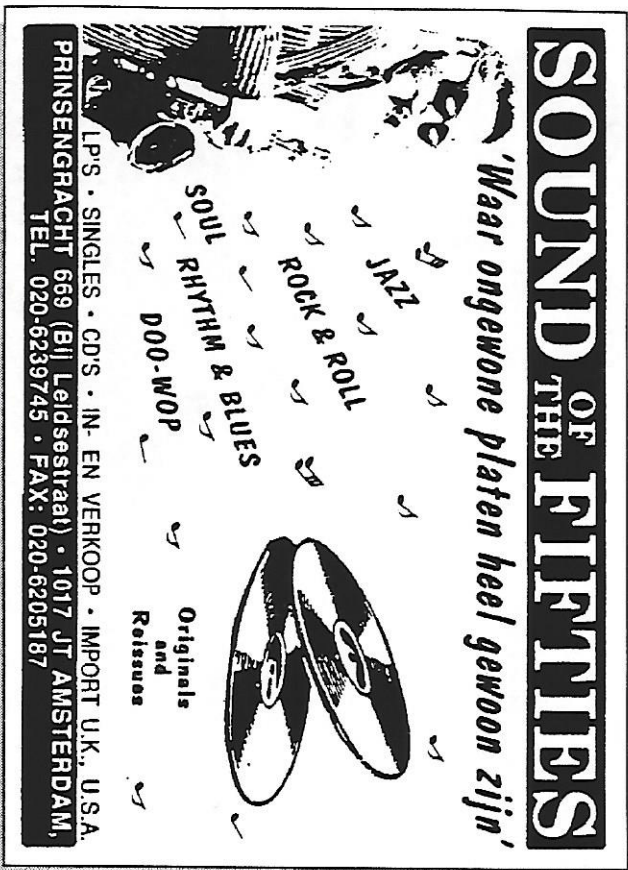 SOUND OF THE FIFTIES
'Waar ongewone platen heel gewoon zijn'
JAZZ
ROCK & ROLL
SOUL
RHYTHM & BLUES
DOO-WOP
Originals
and
Reissues
LP'S • SINGLES • CD'S • IN- EN VERKOOP • IMPORT U.K., U.S.A.
PRINSENGRACHT 669 (Bij Leidsestraat) • 1017 JT AMSTERDAM,
TEL. 020-6239745 • FAX: 020-6205187